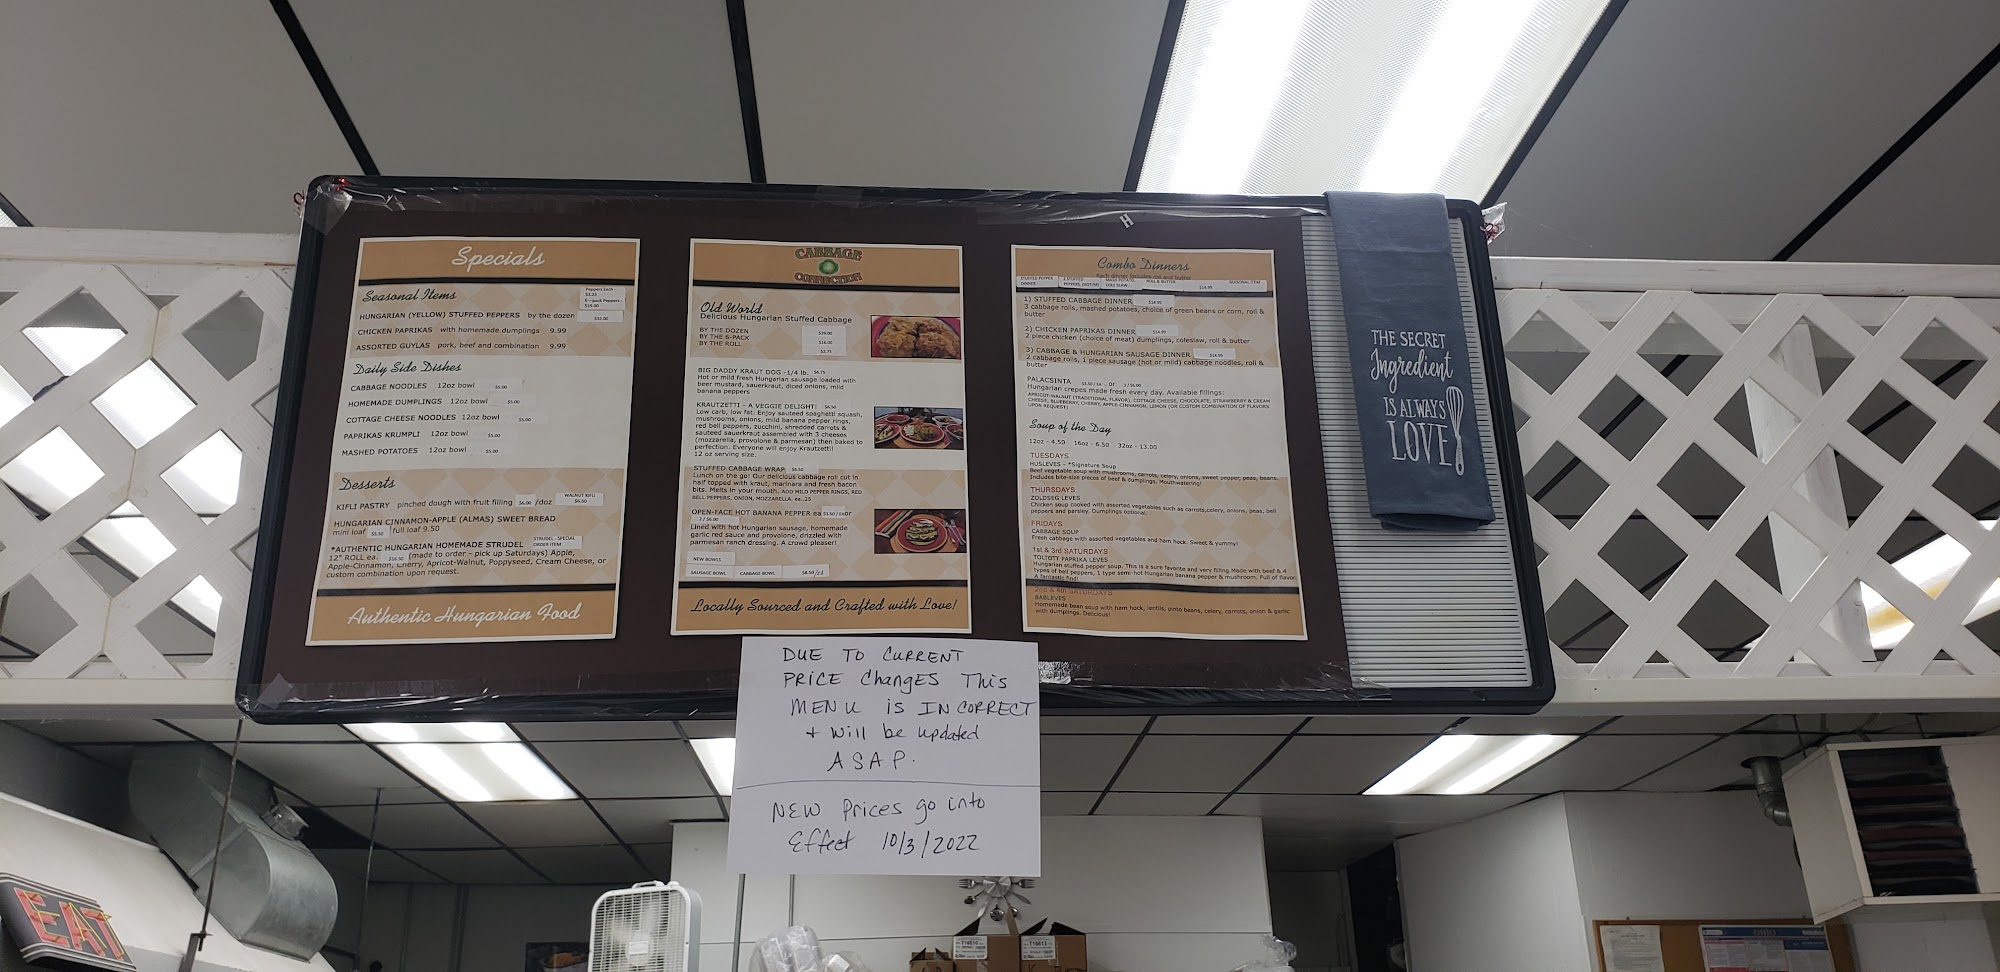 Specials
Seasonal Items
Peppers Each -
$3.25
6-pack Peppers -
HUNGARIAN (YELLOW) STUFFED PEPPERS by the dozen
CHICKEN PAPRIKAS with homemade dumplings 9.99
ASSORTED GUYLAS pork, beef and combination 9.99
Daily Side Dishes
CABBAGE NOODLES 12oz bowl $5.00
HOMEMADE DUMPLINGS 12oz bowl $5.00
COTTAGE CHEESE NOODLES 12oz bowl $5.00
PAPRIKAS KRUMPLI 12oz bowl $5.00
MASHED POTATOES 12oz bowl $5.00
Desserts
KIFLI PASTRY pinched dough with fruit filling $6.00 /doz
WALNUT KIFLI
$6.50
HUNGARIAN CINNAMON-APPLE (ALMAS) SWEET BREAD
mini loaf $5.50 full loaf 9.50
*AUTHENTIC HUNGARIAN HOMEMADE STRUDEL
STRUDEL - SPECIAL
ORDER ITEM
12" ROLL ea. $16.50 (made to order - pick up Saturdays) Apple,
Apple-Cinnamon, Cherry, Apricot-Walnut, Poppyseed, Cream Cheese, or
custom combination upon request.
Authentic Hungarian Food
CABBAGE
CONNECTION
Old World
Delicious Hungarian Stuffed Cabbage
BY THE DOZEN
BY THE 6-PACK
BY THE ROLL
BIG DADDY KRAUT DOG -1/4 lb. $6.75
Hot or mild fresh Hungarian sausage loaded with
beer mustard, sauerkraut, diced onions, mild
banana peppers
KRAUTZETTI - A VEGGIE DELIGHT! $6.50
Low carb, low fat. Enjoy sauteed spaghetti squash,
mushrooms, onions, mild banana pepper rings,
red bell peppers, zucchini, shredded carrots &
sauteed sauerkraut assembled with 3 cheeses
(mozzarella, provolone & parmesan) then baked to
perfection. Everyone will enjoy Krautzetti!
12 oz serving size.
STUFFED CABBAGE WRAP $6.50
Lunch on the go! Our delicious cabbage roll cut in
half topped with kraut, marinara and fresh bacon
bits. Melts in your mouth. ADD MILD PEPPER RINGS, RED
BELL PEPPERS, ONION, MOZZARELLA. ea..25
OPEN-FACE HOT BANANA PEPPER ea $3.50 / EA or
2 / $6.00
Lined with hot Hungarian sausage, homemade
garlic red sauce and provolone, drizzled with
parmesan ranch dressing. A crowd pleaser!
NEW BOWLS
SAUSAGE BOWL CABBAGE BOWL $8.50/EA
Locally Sourced and Crafted with Love!
Combo Dinners
Each dinner includes roll and butter
STUFFED PEPPER
DINNER
ROLL & BUTTER
$14.99
SEASONAL ITEM
1) STUFFED CABBAGE DINNER $14.99
3 cabbage rolls, mashed potatoes, choice of green beans or corn, roll &
butter
2) CHICKEN PAPRIKAS DINNER $14.99
2 piece chicken (choice of meat) dumplings, coleslaw, roll & butter
3) CABBAGE & HUNGARIAN SAUSAGE DINNER $14.99
2 cabbage rolls, 1 piece sausage (hot or mild) cabbage noodles, roll &
butter
PALACSINTA $3.50 / EA - or 2 / $6.00
Hungarian crepes made fresh every day. Available fillings:
APRICOT-WALNUT (TRADITIONAL FLAVOR), COTTAGE CHEESE, CHOCOLATE, STRAWBERRY & CREAM
CHEESE, BLUEBERRY, CHERRY, APPLE-CINNAMON, LEMON (OR CUSTOM COMBINATION OF FLAVORS
UPON REQUEST)
Soup of the Day
12oz - 4.50 16oz - 6.50 32oz - 13.00
TUESDAYS
HUSLEVES - *Signature Soup
Beef vegetable soup with mushrooms, carrots, celery, onions, sweet pepper, peas, beans.
Includes bite-size pieces of beef & dumplings. Mouthwatering!
THURSDAYS
ZOLDSEG LEVES
Chicken soup cooked with assorted vegetables such as carrots,celery, onions, peas, bell
peppers and parsley. Dumplings optional.
FRIDAYS
CABBAGE SOUP
Fresh cabbage with assorted vegetables and ham hock. Sweet & yummy!
1st & 3rd SATURDAYS
TOLTOTT PAPRIKA LEVES
Hungarian stuffed pepper soup. This is a sure favorite and very filling. Made with beef & 4
types of bell peppers, 1 type semi-hot Hungarian banana pepper & mushroom. Full of flavor.
A fantastic find!
2nd & 4th SATURDAYS
BABLEVES
Homemade bean soup with ham hock, lentils, pinto beans, celery, carrots, onion & garlic
with dumplings. Delicious!
THE SECRET
Ingredient
IS ALWAYS
LOVE
DUE TO CURRENT
PRICE CHANGES THIS
MENU IS INCORRECT
+ WILL be updated
ASAP.
NEW Prices go into
Effect 10/3/2022
EAT
OHIO